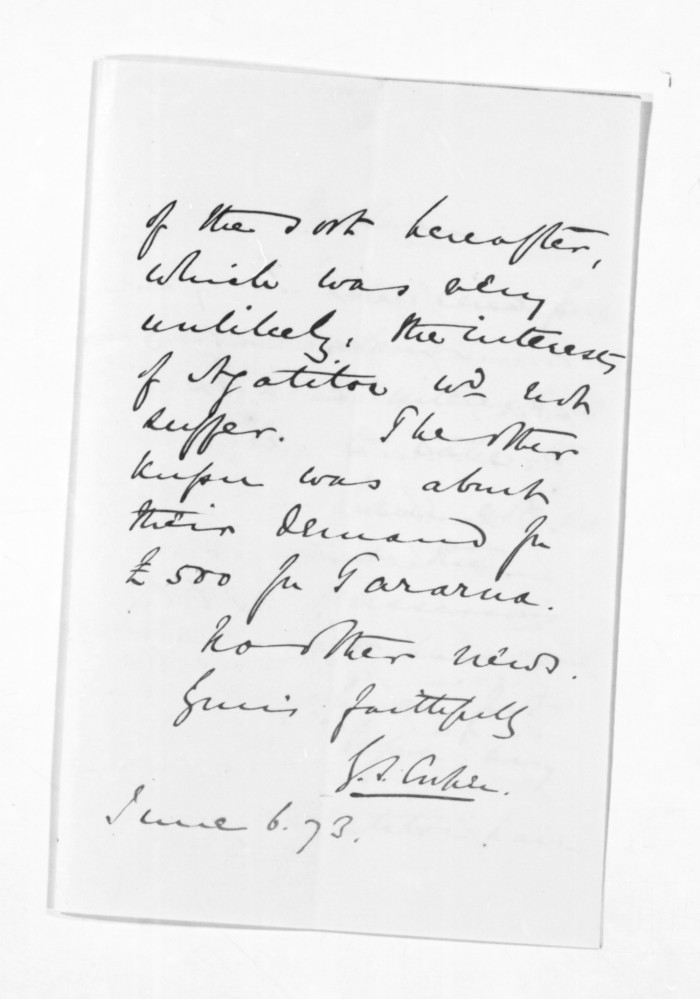 of the sort hereafter,
which was very
unlikely, the interests
of Ngatitoa wd not
suffer. The other
kupu was about
their demand for
£500 for Tararua.
No other news.
Yours faithfully
G.S. Cooper.
June 6. 73.